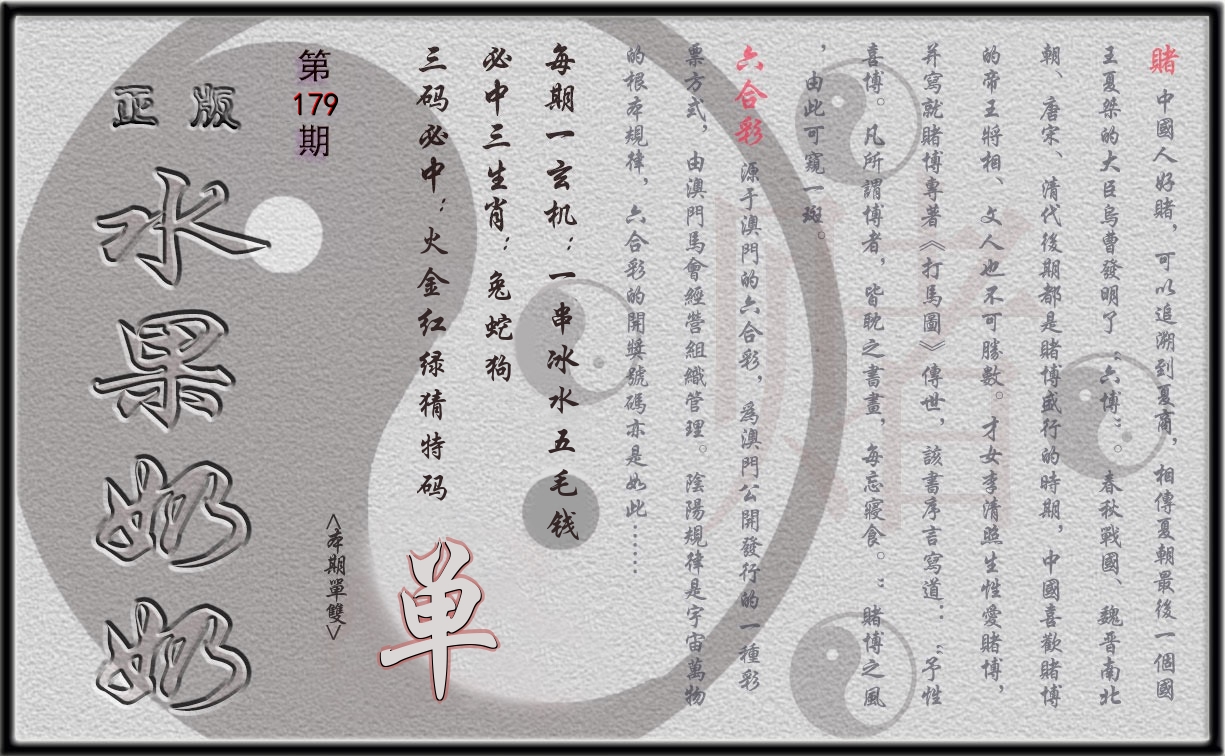 賭 中國人好賭，可以追溯到夏商，相傳夏朝最後一個國
王夏桀的大臣烏曹發明了“六博”。春秋戰國、魏晉南北
朝、唐宋、清代後期都是賭博盛行的時期，中國喜歡賭博
的帝王將相、文人也不可勝數。才女李清照生性愛賭博，
并寫就賭博專著《打馬圖》傳世，該書序言寫道：“予性
喜博。凡所謂博者，皆耽之書晝，每忘寢食。”賭博之風
，由此可窺一斑。
六合彩 源于澳門的六合彩，為澳門公開發行的一種彩
票方式，由澳門馬會經營組織管理。陰陽規律是宇宙萬物
的根本規律，六合彩的開獎號碼亦是如此……
每期一玄机：一串冰水五毛钱
必中三生肖：兔蛇狗
三码必中：火金红绿猜特码
单
<本期單雙>
第
179
期
正版
水果奶奶
賭